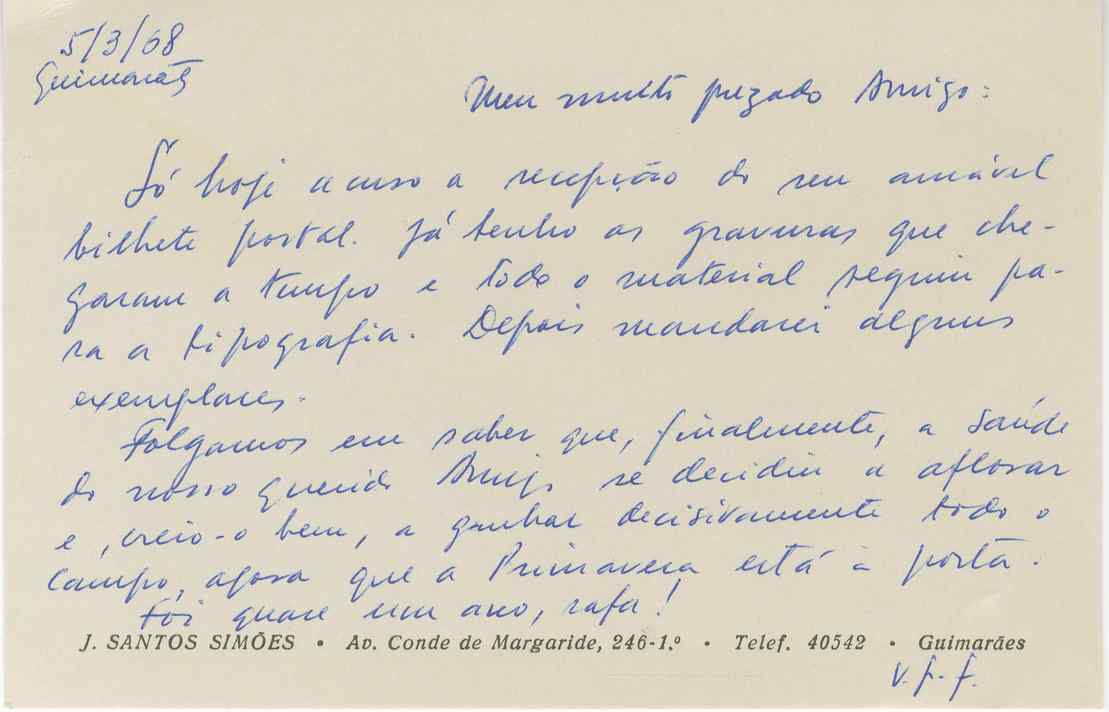 5/3/68
Guimarães
Meu muito prezado Amigo:
Só hoje acuso a recepção do seu amável
bilhete postal. Já tenho as gravuras que che-
garam a tempo e todo o material seguiu pa-
ra a tipografia. Depois mandarei alguns
exemplares.
Folgamos em saber que, finalmente, a saúde
do nosso querido Amigo se decidiu a aflorar
e, creio-o bem, a ganhar decisivamente todo o
campo, agora que a Primavera está à porta.
Foi quase um ano, safa!
J. SANTOS SIMÕES • Av. Conde de Margaride, 246-1.º • Telef. 40542 • Guimarães
V. f. f.